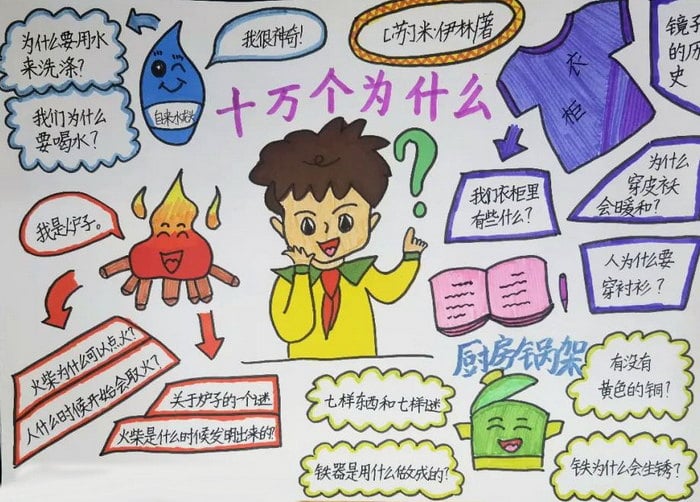 为什么要用水
来洗涤？
我们为什么
要喝水？
自来水龙头
我很神奇！
[苏]米·伊林/著
十万个为什么
衣
柜
镜子
的历
史
我们衣柜里
有些什么？
为什么
穿皮衣
会暖和？
人为什么要
穿衬衫？
我是炉子。
火柴为什么可以点火？
人什么时候开始会取火？
关于炉子的一个谜
火柴是什么时候发明出来的？
厨房锅架
七样东西和七样谜
铁器是用什么做成的？
有没有
黄色的铜？
铁为什么会生锈？